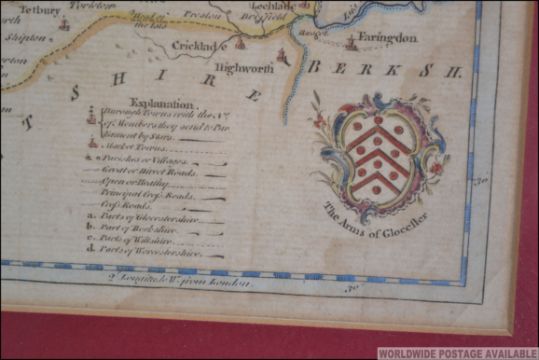 Tetbury
Preston
Lechlade
Shipton
Cricklade
Faringdon
Highworth
BERKSH.
SHIRE
Explanation
Burrough Towns with the No.
of Members they send to Par
liament by Stars.
Market Towns.
Parishes or Villages.
Great or Direct Roads.
Open or Heathy
Principal Cross Roads.
Cross Roads.
a. Parts of Glocestershire.
b. Part of Berkshire.
c. Parts of Wiltshire.
d. Parts of Worcestershire.
The Arms of Glocester
30
2d. Longitude Wt. from London.
30'
WORLDWIDE POSTAGE AVAILABLE